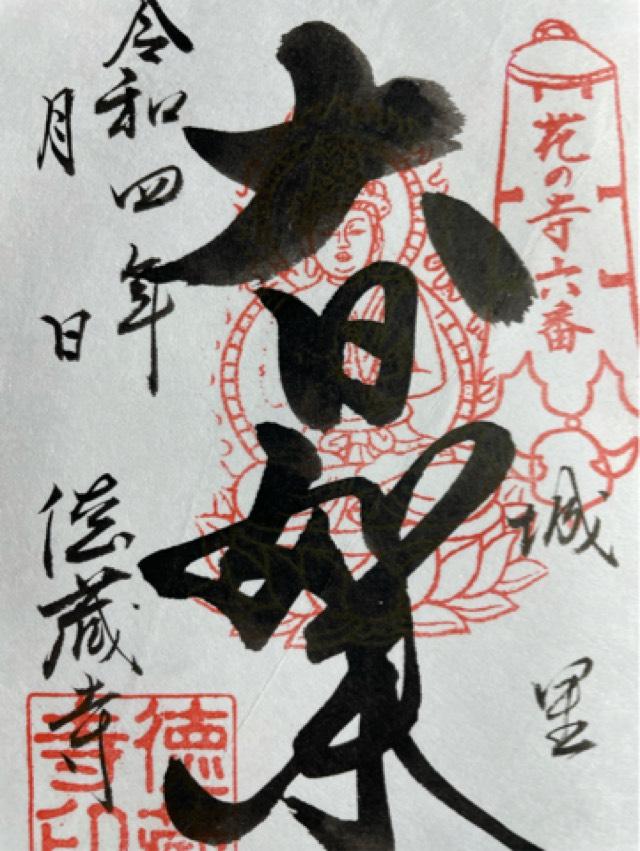 花の寺六番
城里
大日如来
令和四年
月 日
徳蔵寺
徳蔵
寺印